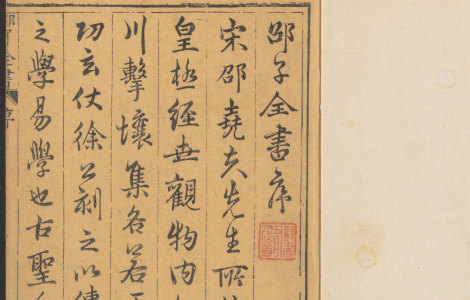 邵子全書序
宋邵堯夫先生所
皇極經世觀物内
川擊壤集各若
功玄仗徐公刻之以傳
之學易學也古聖
邵子全書 序